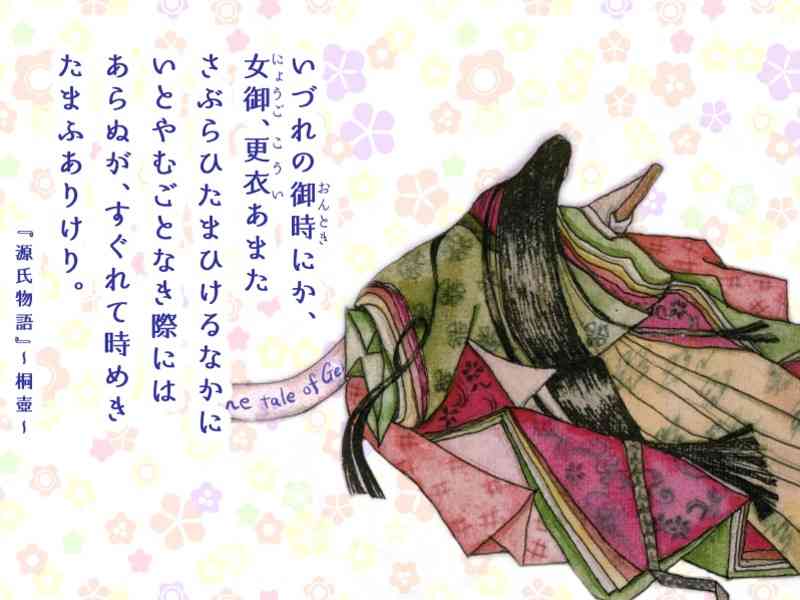 いづれの御時にか、
おんとき
女御、更衣あまた
にょうご こうい
さぶらひたまひけるなかに
いとやむごとなき際には
あらぬが、すぐれて時めき
たまふありけり。
『源氏物語』～桐壺～
tale of